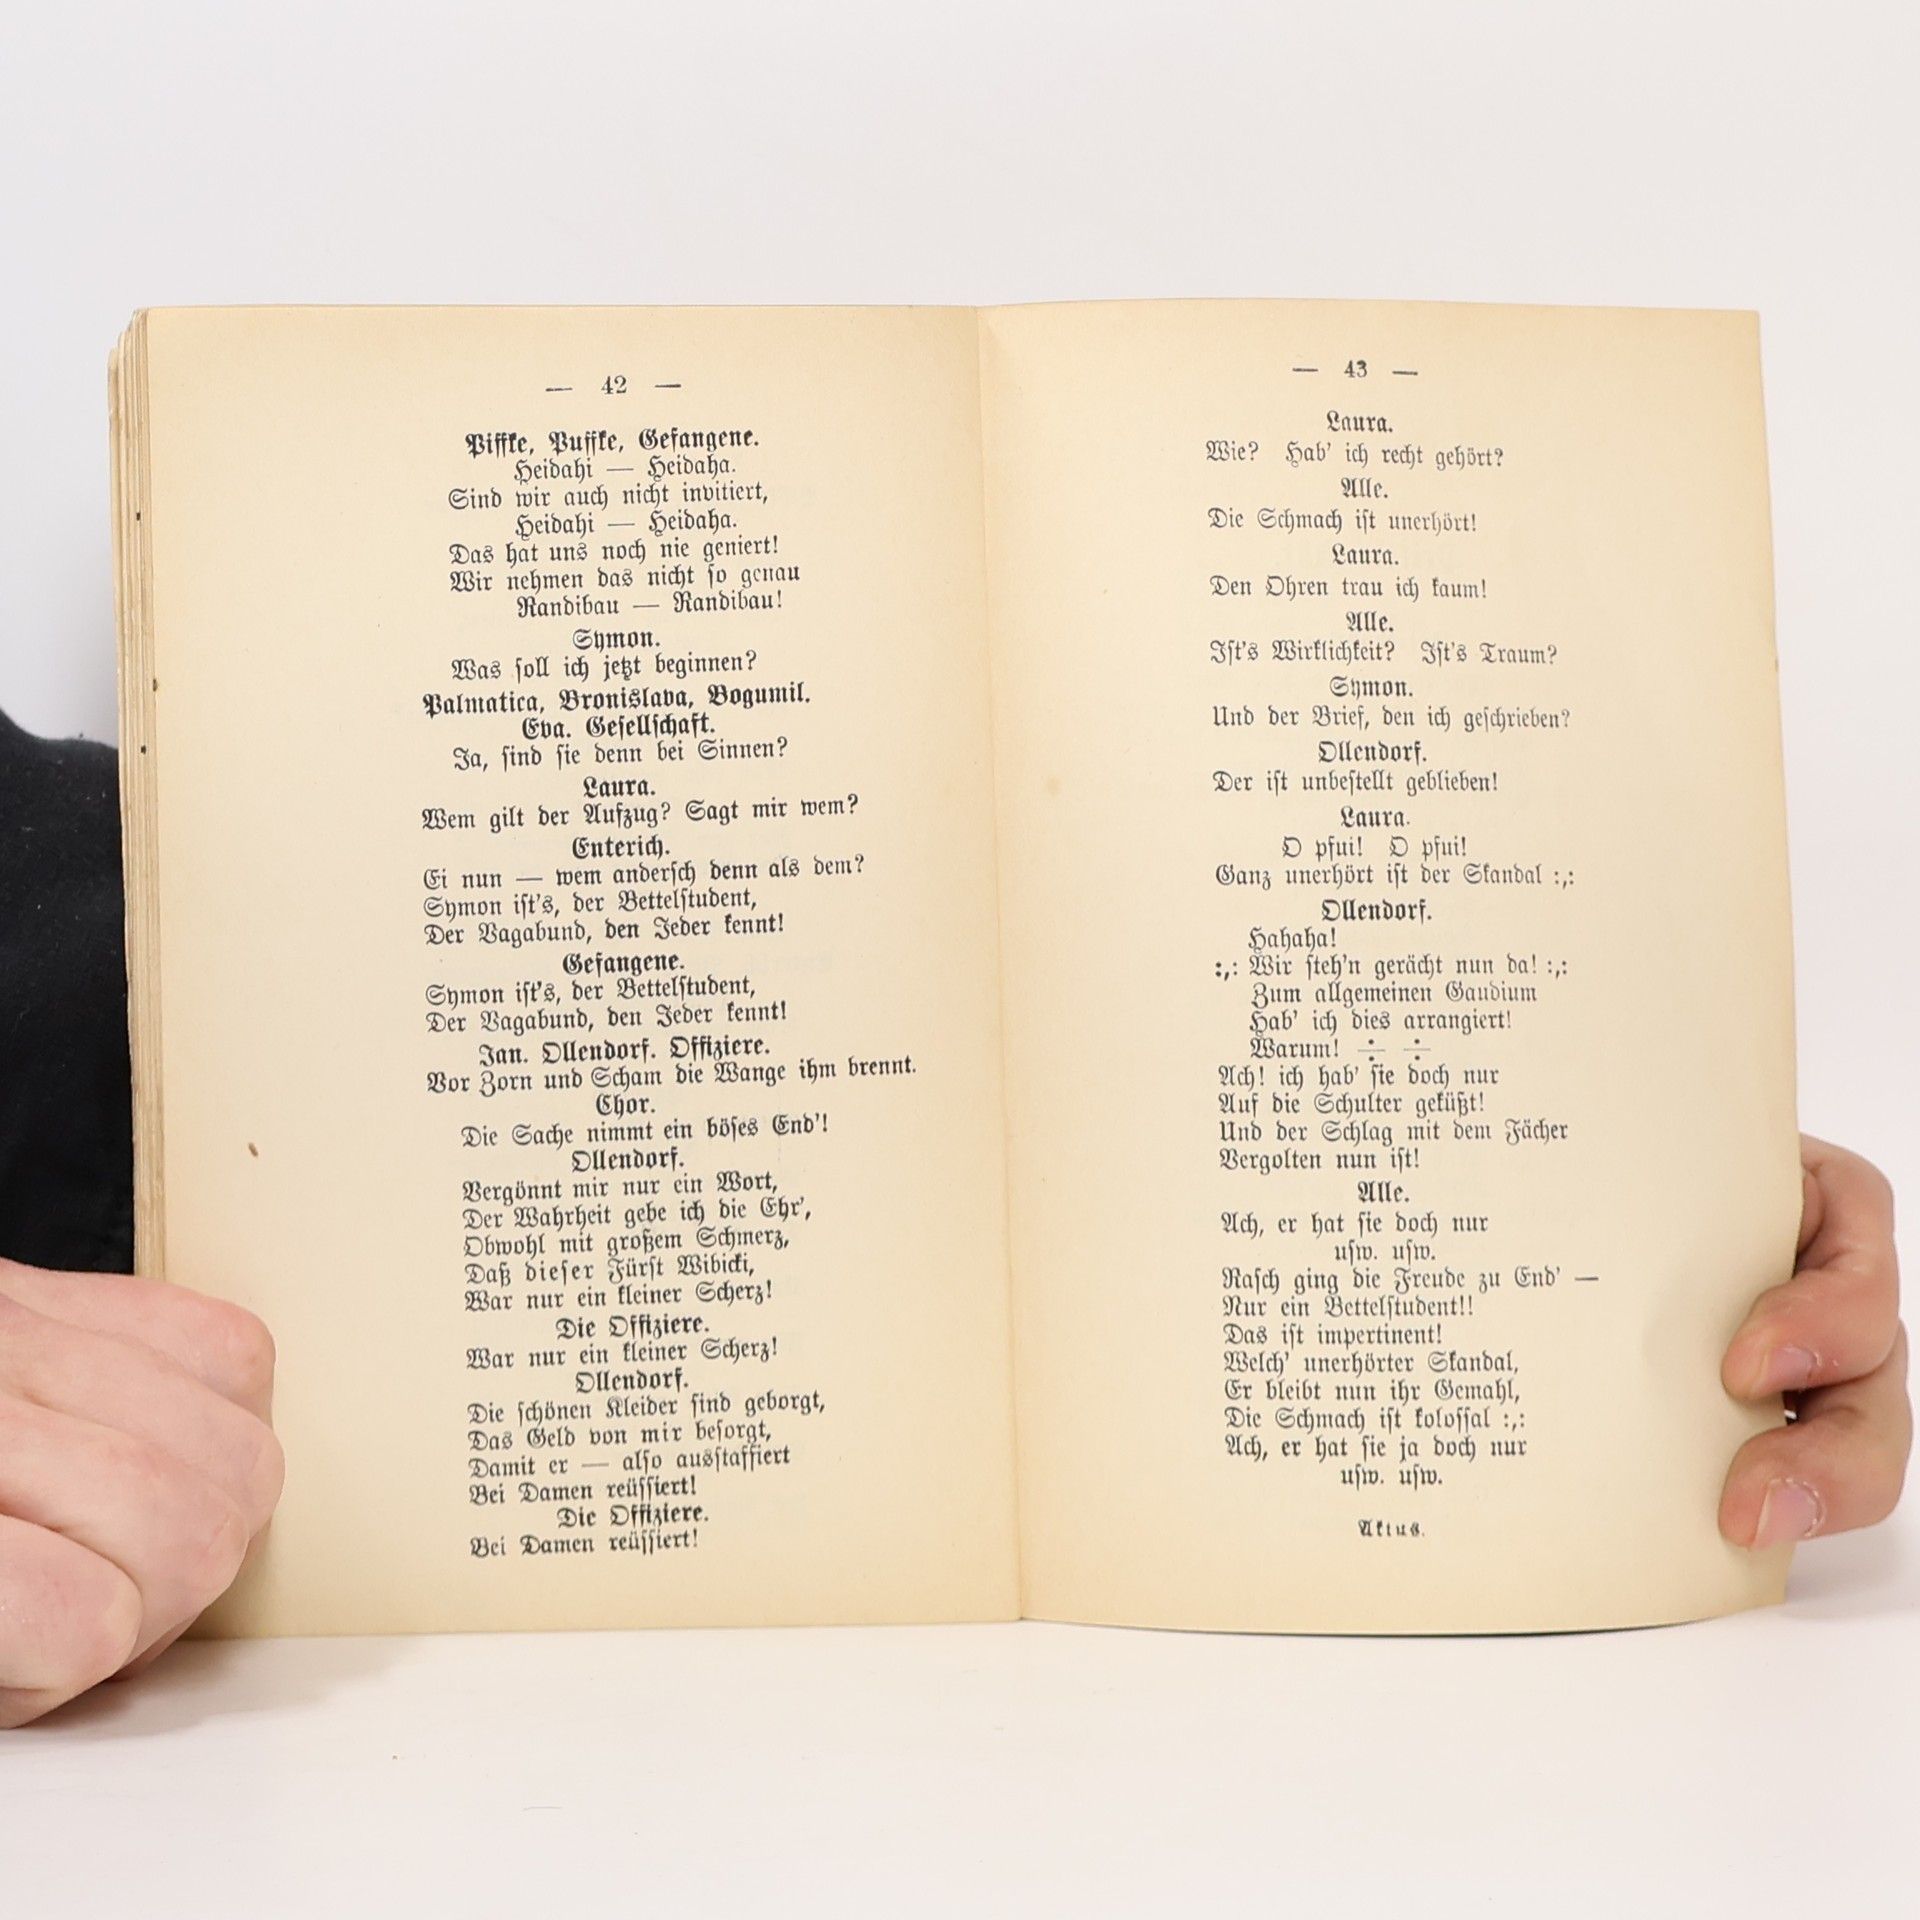 — 42 —
Piffke, Puffke, Gefangene.
Heidahi — Heidaha.
Sind wir auch nicht invitiert,
Heidahi — Heidaha.
Das hat uns noch nie geniert!
Wir nehmen das nicht so genau
Randibau — Randibau!
Symon.
Was soll ich jetzt beginnen?
Palmatica, Bronislava, Bogumil.
Eva. Gesellschaft.
Ja, sind sie denn bei Sinnen?
Laura.
Wem gilt der Aufzug? Sagt mir wem?
Enterich.
Ei nun — wem andersch denn als dem?
Symon ist's, der Bettelstudent,
Der Vagabund, den Jeder kennt!
Gefangene.
Symon ist's, der Bettelstudent,
Der Vagabund, den Jeder kennt!
Jan. Ollendorf. Offiziere.
Vor Zorn und Scham die Wange ihm brennt.
Chor.
Die Sache nimmt ein böses End'!
Ollendorf.
Vergönnt mir nur ein Wort,
Der Wahrheit gebe ich die Ehr',
Obwohl mit großem Schmerz,
Daß dieser Fürst Wibicki,
War nur ein kleiner Scherz!
Die Offiziere.
War nur ein kleiner Scherz!
Ollendorf.
Die schönen Kleider sind geborgt,
Das Geld von mir besorgt,
Damit er — also ausstaffiert
Bei Damen reüssiert!
Die Offiziere.
Bei Damen reüssiert!
— 43 —
Laura.
Wie? Hab' ich recht gehört?
Alle.
Die Schmach ist unerhört!
Laura.
Den Ohren trau ich kaum!
Alle.
Ist's Wirklichkeit? Ist's Traum?
Symon.
Und der Brief, den ich geschrieben?
Ollendorf.
Der ist unbestellt geblieben!
Laura.
O pfui! O pfui!
Ganz unerhört ist der Skandal :,:
Ollendorf.
Hahaha!
:,: Wir steh'n gerächt nun da! :,:
Zum allgemeinen Gaudium
Hab' ich dies arrangiert!
Warum! ÷ ÷
Ach! ich hab' sie doch nur
Auf die Schulter geküßt!
Und der Schlag mit dem Fächer
Vergolten nun ist!
Alle.
Ach, er hat sie doch nur
usw. usw.
Rasch ging die Freude zu End' —
Nur ein Bettelstudent!!
Das ist impertinent!
Welch' unerhörter Skandal,
Er bleibt nun ihr Gemahl,
Die Schmach ist kolossal :,:
Ach, er hat sie ja doch nur
usw. usw.
Aktus.